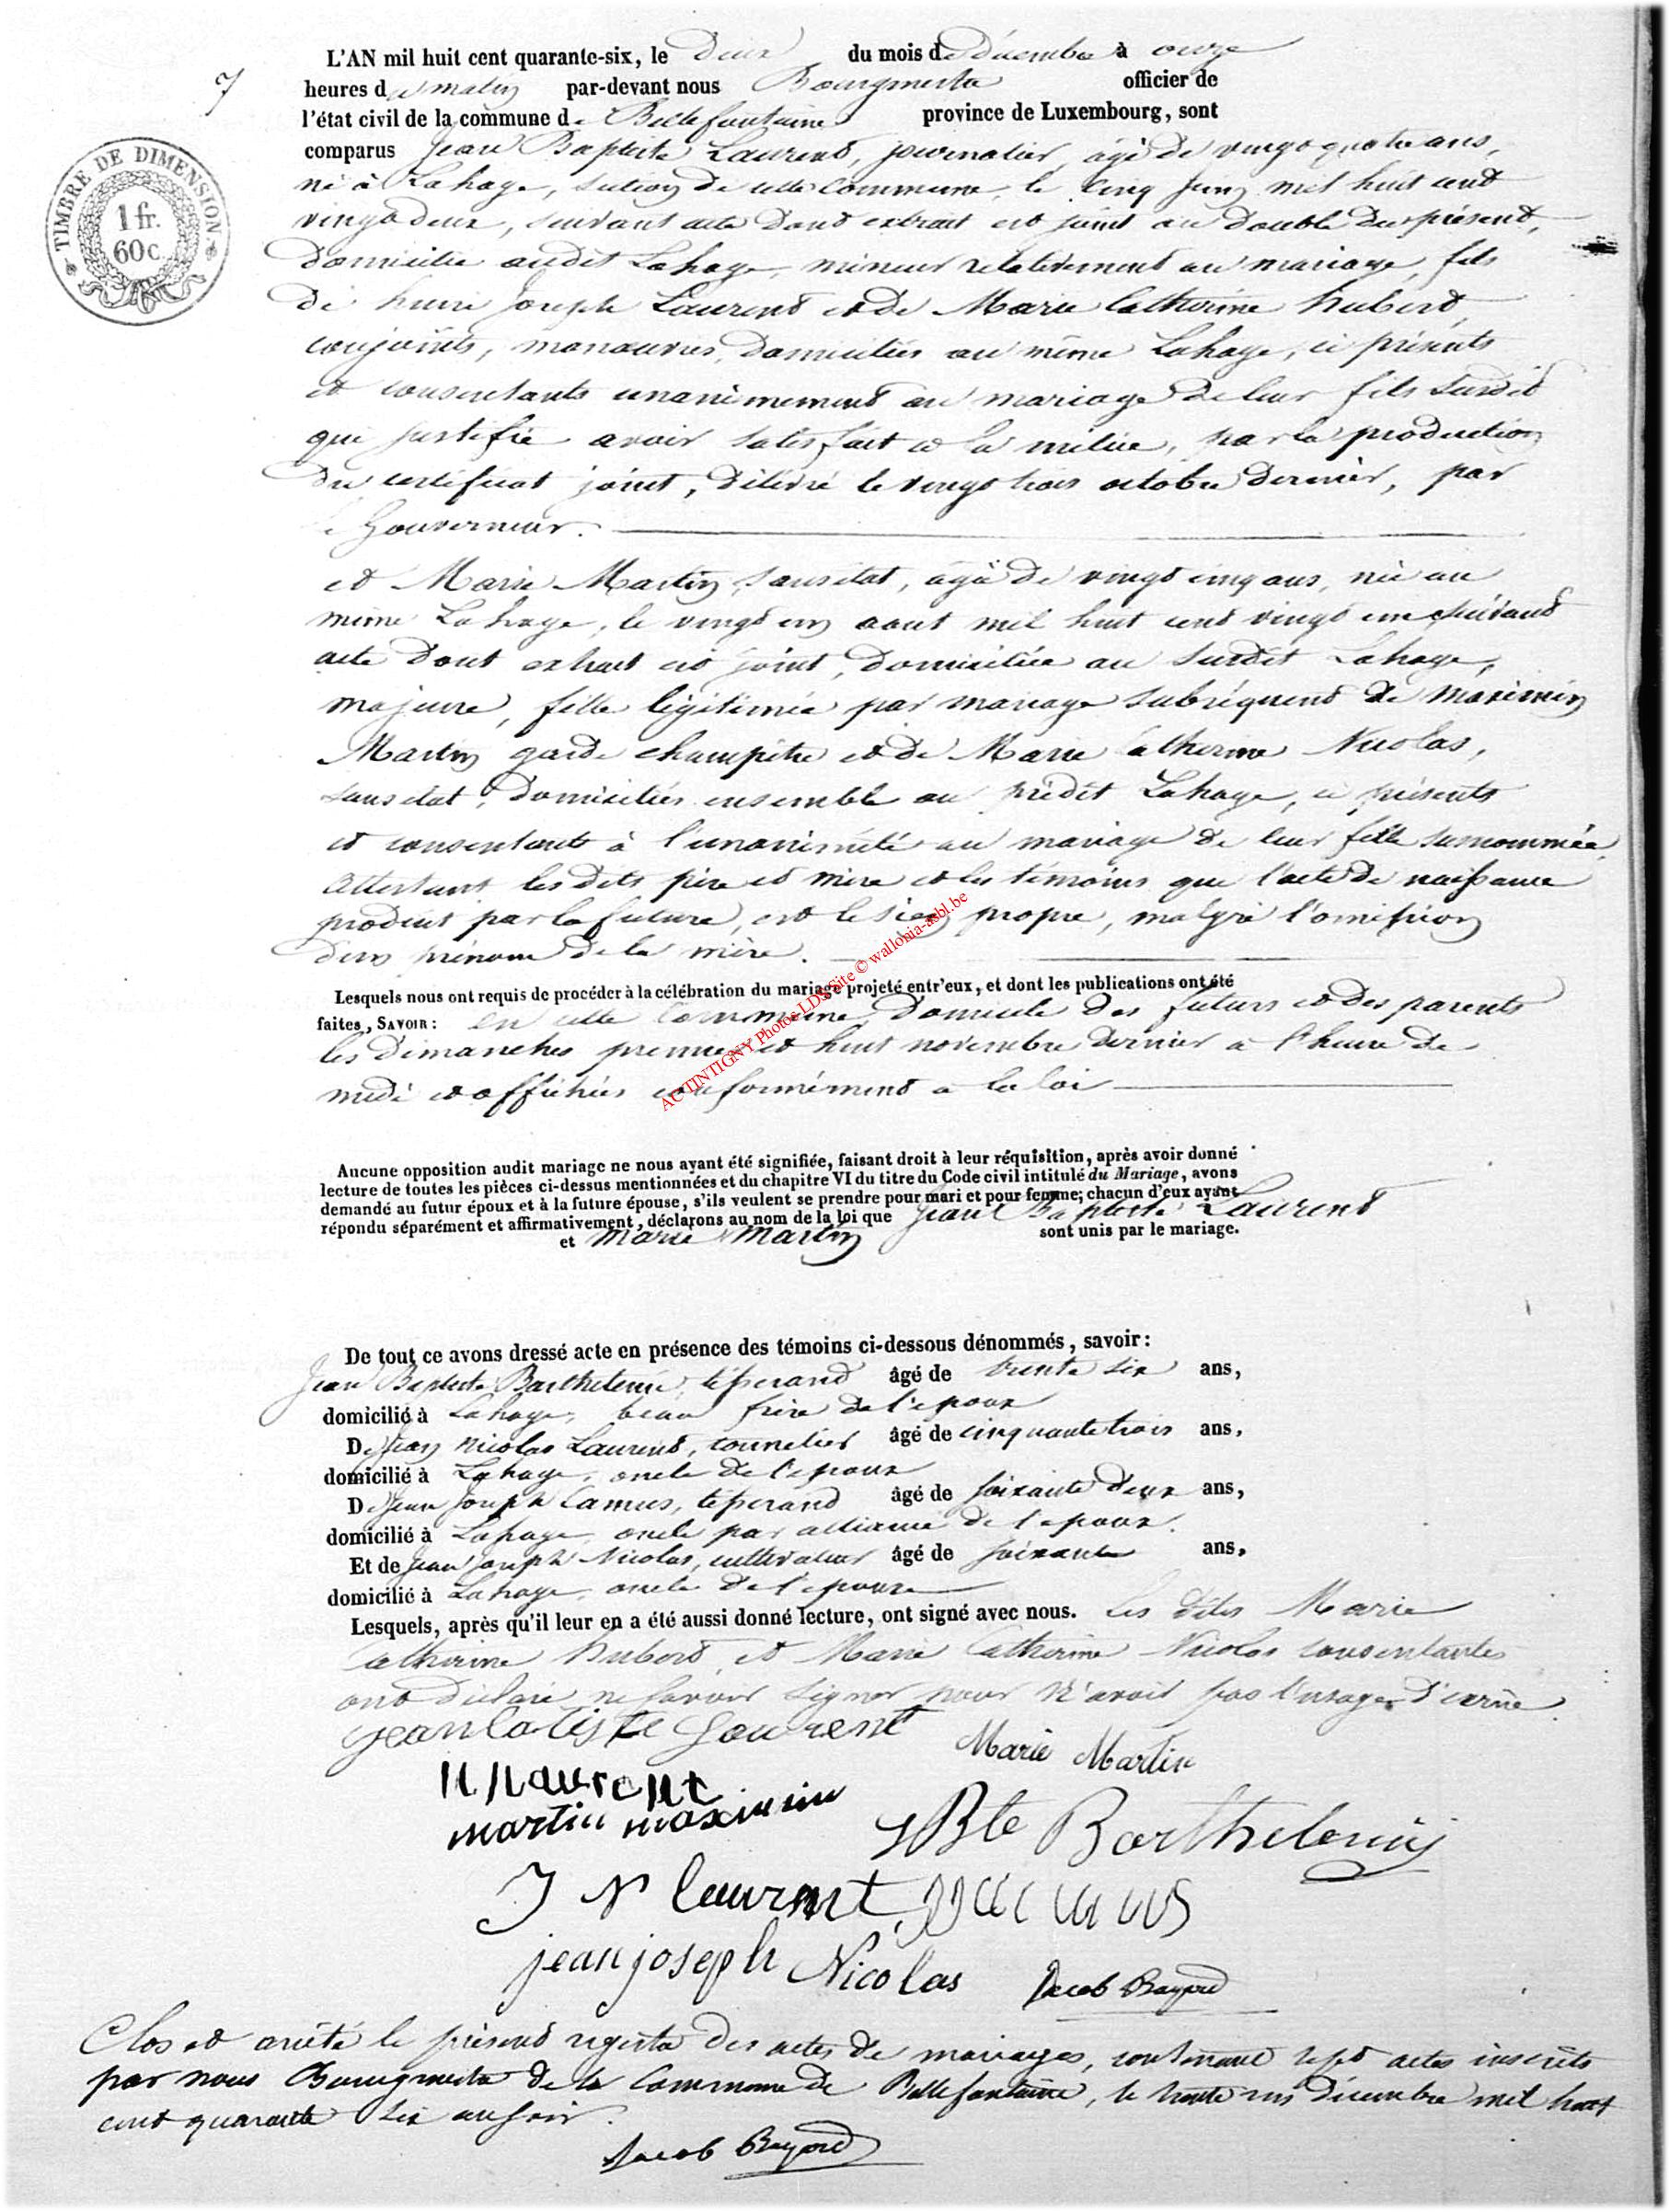 7
L'AN mil huit cent quarante-six, le deux du mois de décembre à onze
heures du matin par-devant nous Bourgmestre officier de
l'état civil de la commune de Bellefontaine province de Luxembourg, sont
comparus Jean Baptiste Laurent, journalier, âgé de vingt quatre ans,
né à Lahage, section de cette Commune, le cinq juin mil huit cent
vingt deux, suivant acte dont extrait est joint au double du présent,
domicilié audit Lahage, mineur relativement au mariage, fils
de henri Joseph Laurent et de Marie Catherine hubert,
conjoints, manœuvres, domiciliés au même Lahage, ci présents
et consentants unanimement au mariage de leur fils susdit
qui justifie avoir satisfait à la milice, par la production
du certificat joint, délivré le vingt trois octobre dernier, par
le Gouverneur.
et Marie Martin, sans état, âgée de vingt cinq ans, née au
même Lahage, le vingt un aout mil huit cent vingt un, suivant
acte dont extrait est joint, domiciliée au susdit Lahage,
majeure, fille légitimée par mariage subséquent de Maximin
Martin garde champêtre et de Marie Catherine Nicolas,
sans état, domiciliés ensemble au prédit Lahage, ci présents
et consentants à l'unanimité au mariage de leur fille surnommée
Attestant les dits père et mère et les témoins que l'acte de naissance
produit par la future, est le sien propre, malgré l'omission
d'un prénom de la mère.
Lesquels nous ont requis de procéder à la célébration du mariage projeté entr'eux, et dont les publications ont été
faites, SAVOIR : en cette Commune, domicile des futurs et des parents
les dimanches premier et huit novembre dernier à l'heure de
midi et affichées conformément à la loi
Aucune opposition audit mariage ne nous ayant été signifiée, faisant droit à leur réquisition, après avoir donné
lecture de toutes les pièces ci-dessus mentionnées et du chapitre VI du titre du Code civil intitulé du Mariage, avons
demandé au futur époux et à la future épouse, s'ils veulent se prendre pour mari et pour femme; chacun d'eux ayant
répondu séparément et affirmativement, déclarons au nom de la loi que Jean Baptiste Laurent
et Marie Martin sont unis par le mariage.
De tout ce avons dressé acte en présence des témoins ci-dessous dénommés, savoir :
Jean Baptiste Barthelemi, tisserand âgé de trente six ans,
domicilié à Lahage, beau frère de l'époux
De Jean Nicolas Laurent, tonnelier âgé de cinquante trois ans,
domicilié à Lahage, oncle de l'époux
De Jean Joseph Camus, tisserand âgé de soixante deux ans,
domicilié à Lahage, oncle par alliance de l'époux.
Et de Jean Joseph Nicolas, cultivateur âgé de soixante ans,
domicilié à Lahage, oncle de l'épouse
Lesquels, après qu'il leur en a été aussi donné lecture, ont signé avec nous. Les dites Marie
Catherine hubert, et Marie Catherine Nicolas consentantes
ont déclaré ne savoir signer pour n'avoir pas l'usage d'écrire.
jean batiste Laurent Marie Martin
H J Laurent
martin maximin JBte Barthelemy
J N laurent JJ Camus
jean joseph Nicolas Jacob Bayard
Clos et arrêté le présent registre des actes de mariages, contenant sept actes inscrits
par nous Bourgmestre de la Commune de Bellefontaine, le trente un décembre mil huit
cent quarante six au soir.
Jacob Bayard
TIMBRE DE DIMENSION
1 fr.
60 c
ACTINTIGNY Photos LDS Site © wallonia-asbl.be